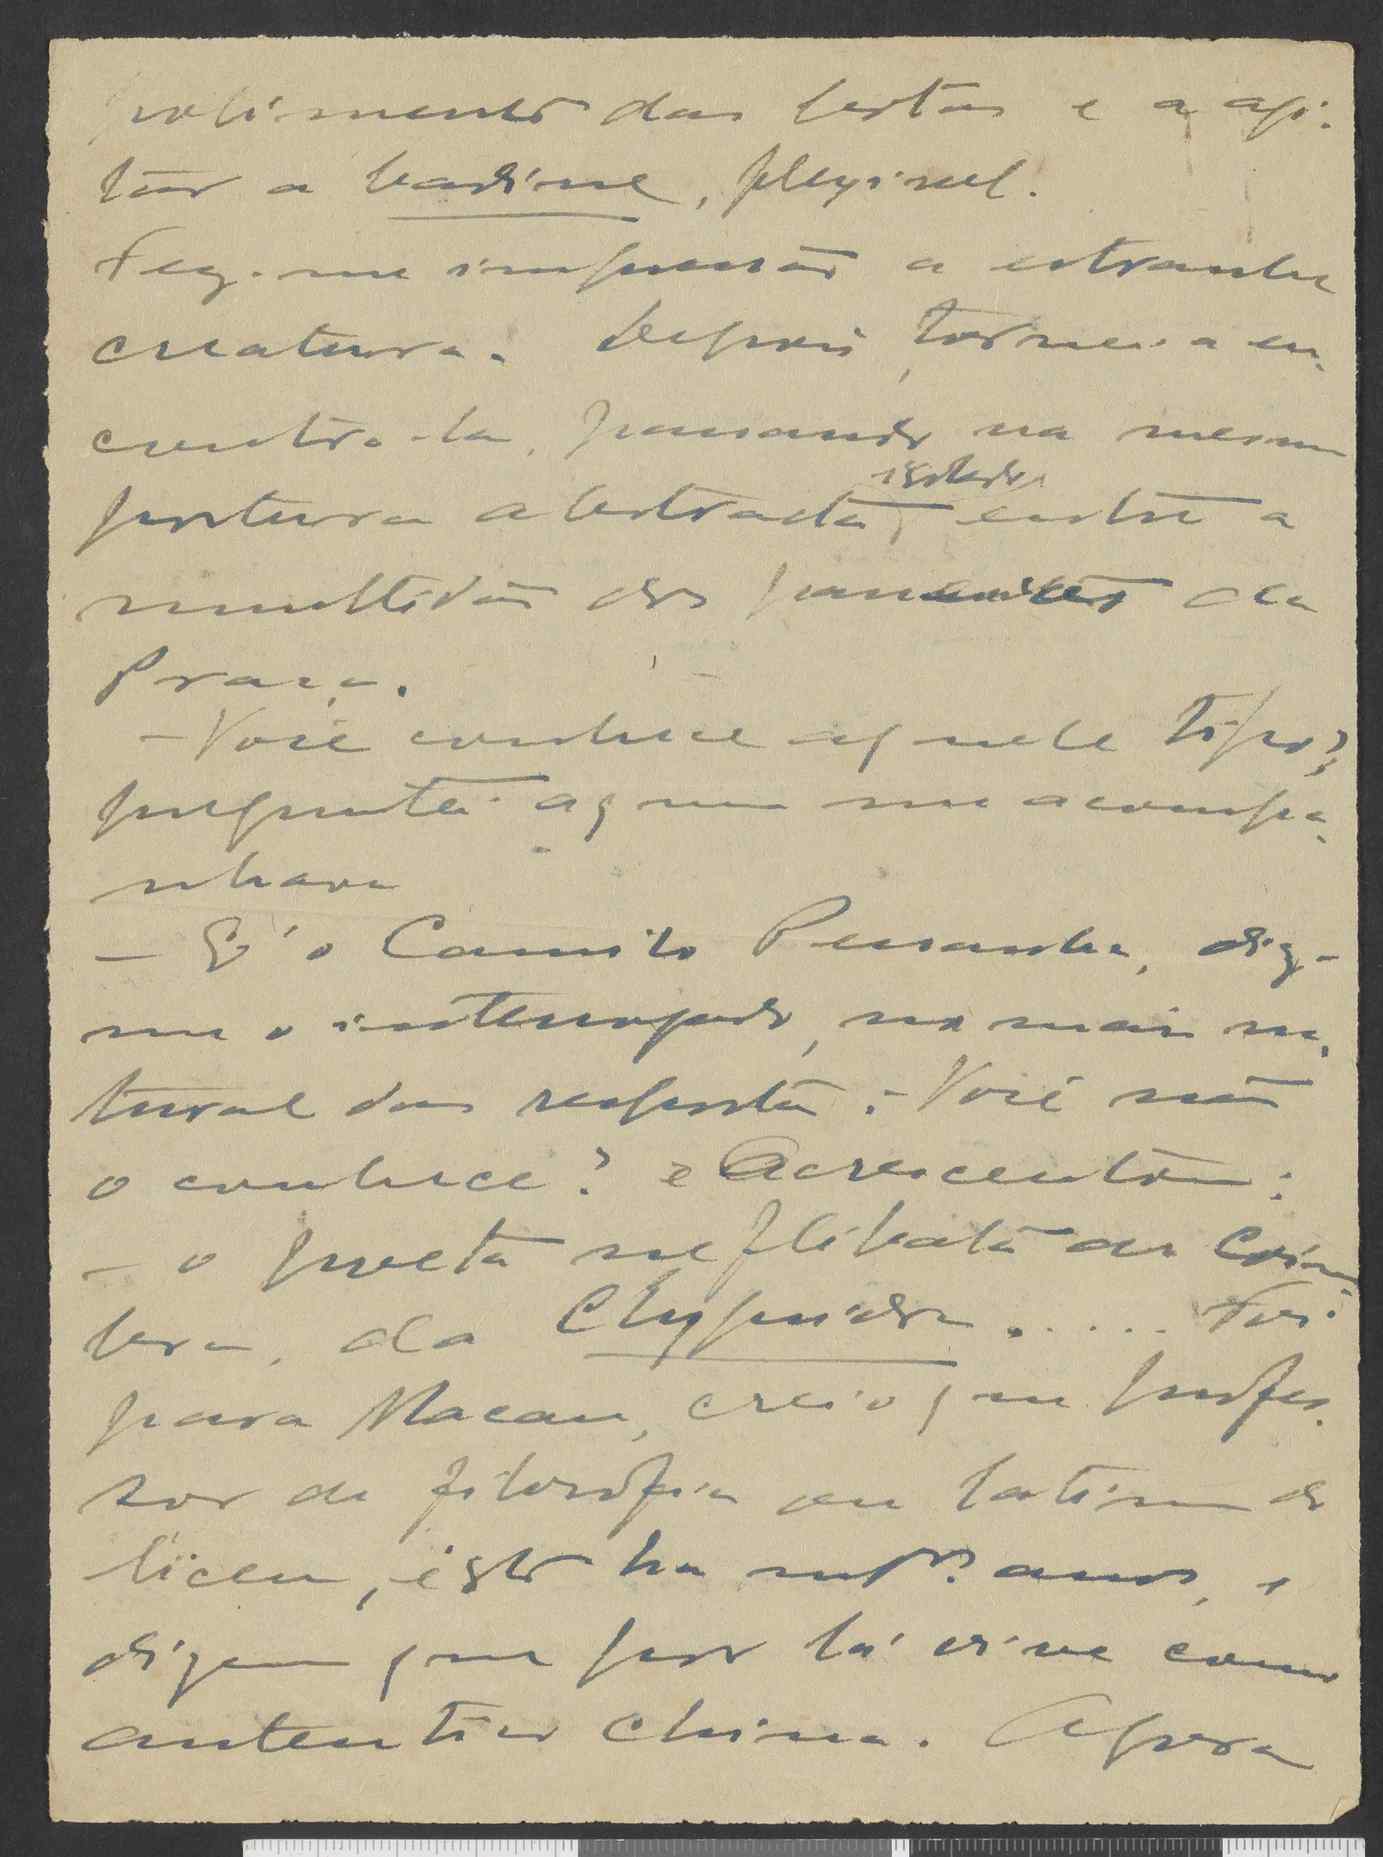 das bestas e a agi-
tar a badine, flexivel.
Fez-me impressão a estranha
creatura. Depois, tornei a en-
contra-la, passando na mesma
postura abstracta, isolado entre a
multidão dos passantes da
Praça.
- Você conhece aquele tipo?
preguntei a quem me acompa-
nhava
- E' o Camilo Pessanha, diz-
me o interrogado, na mais na-
tural das respostas. - Você não
o conhece? e Acrescentou:
- o poeta nefelibata de Coim
bra, da Clepsidra..... Foi
para Macau, creio que profes-
sor de filosofia ou latim do
liceu, isto ha anos, e
dizem que por lá vive como
autentico china. Agora